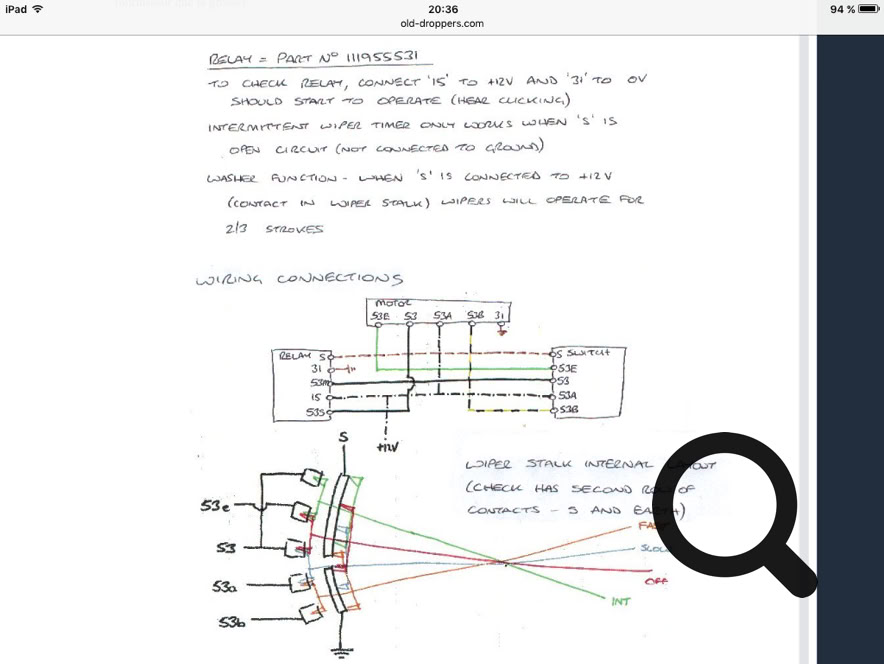 iPad
20:36
94 %
old-droppers.com
RELAY = PART Nº 111955531
TO CHECK RELAY, CONNECT '15' TO +12V AND '31' TO 0V
SHOULD START TO OPERATE (HEAR CLICKING)
INTERMITTENT WIPER TIMER ONLY WORKS WHEN 'S' IS
OPEN CIRCUIT (NOT CONNECTED TO GROUND)
WASHER FUNCTION - WHEN 'S' IS CONNECTED TO +12V
(CONTACT IN WIPER STALK) WIPERS WILL OPERATE FOR
2/3 STROKES
WIRING CONNECTIONS
MOTOR
53E 53 53A 53B 31
RELAY S
31
53M
15
53S
S SWITCH
53E
53
53A
53B
+12V
S
WIPER STALK INTERNAL LAYOUT
(CHECK HAS SECOND ROW OF
CONTACTS - S AND EARTH)
53e
53
53a
53b
FAST
SLOW
OFF
INT